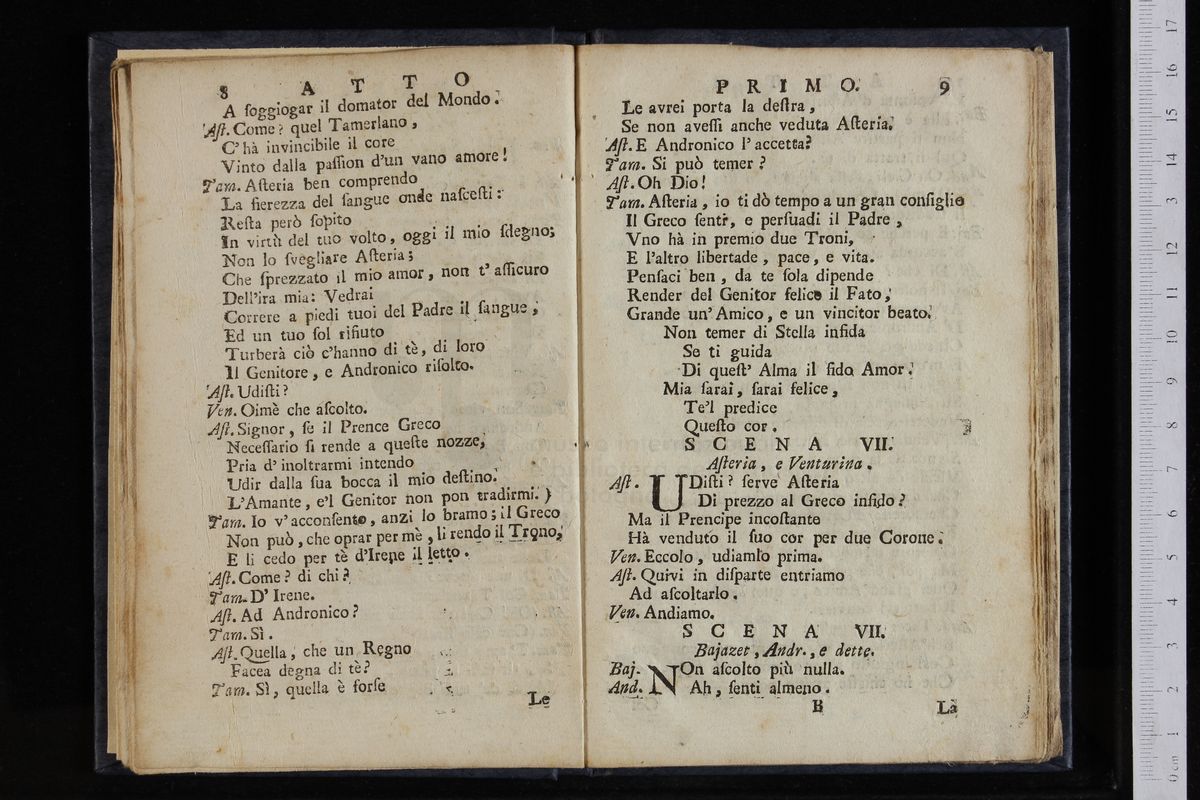 8 A T T O
A ſoggiogar il domator del Mondo.
Aſt. Come? quel Tamerlano,
C'hà invincibile il core
Vinto dalla paſſion d'un vano amore!
Tam. Aſteria ben comprendo
La fierezza del ſangue onde naſceſti:
Reſta però ſopito
In virtù del tuo volto, oggi il mio ſdegno;
Non lo ſvegliare Aſteria;
Che ſprezzato il mio amor, non t'aſſicuro
Dell'ira mia: Vedrai
Correre a piedi tuoi del Padre il ſangue;
Ed un tuo ſol rifiuto
Turberà ciò c'hanno di tè, di loro
Il Genitore, e Andronico riſolto.
Aſt. Udiſti?
Ven. Oimè che aſcolto.
Aſt. Signor, ſe il Prence Greco
Neceſſario ſi rende a queſte nozze,
Pria d'inoltrarmi intendo
Udir dalla ſua bocca il mio deſtino.
L'Amante, e'l Genitor non pon tradirmi. )
Tam. Io v'acconſento, anzi lo bramo; il Greco
Non può, che oprar per mè, li rendo il Trono,
E li cedo per tè d'Irene il letto.
Aſt. Come? di chi?
Tam. D'Irene.
Aſt. Ad Andronico?
Tam. Sì.
Aſt. Quella, che un Regno
Facea degna di tè?
Tam. Sì, quella è forſe
Le
P R I M O. 9
Le avrei porta la deſtra,
Se non aveſſi anche veduta Aſteria.
Aſt. E Andronico l'accetta?
Tam. Si può temer?
Aſt. Oh Dio!
Tam. Aſteria, io ti dò tempo a un gran conſiglio
Il Greco ſentì, e perſuadi il Padre,
Vno hà in premio due Troni,
E l'altro libertade, pace, e vita.
Penſaci ben, da te ſola dipende
Render del Genitor felice il Fato,
Grande un'Amico, e un vincitor beato.
Non temer di Stella infida
Se ti guida
Di queſt'Alma il fido Amor.
Mia ſarai, ſarai felice,
Te'l predice
Queſto cor.
S C E N A VII.
Aſteria, e Venturina.
Aſt. UDiſti? ſerve Aſteria
Di prezzo al Greco infido?
Ma il Prencipe incoſtante
Hà venduto il ſuo cor per due Corone.
Ven. Eccolo, udiamlo prima.
Aſt. Quivi in diſparte entriamo
Ad aſcoltarlo.
Ven. Andiamo.
S C E N A VII.
Bajazet, Andr., e dette.
Baj. NOn aſcolto più nulla.
And. Ah, ſenti almeno.
B Là